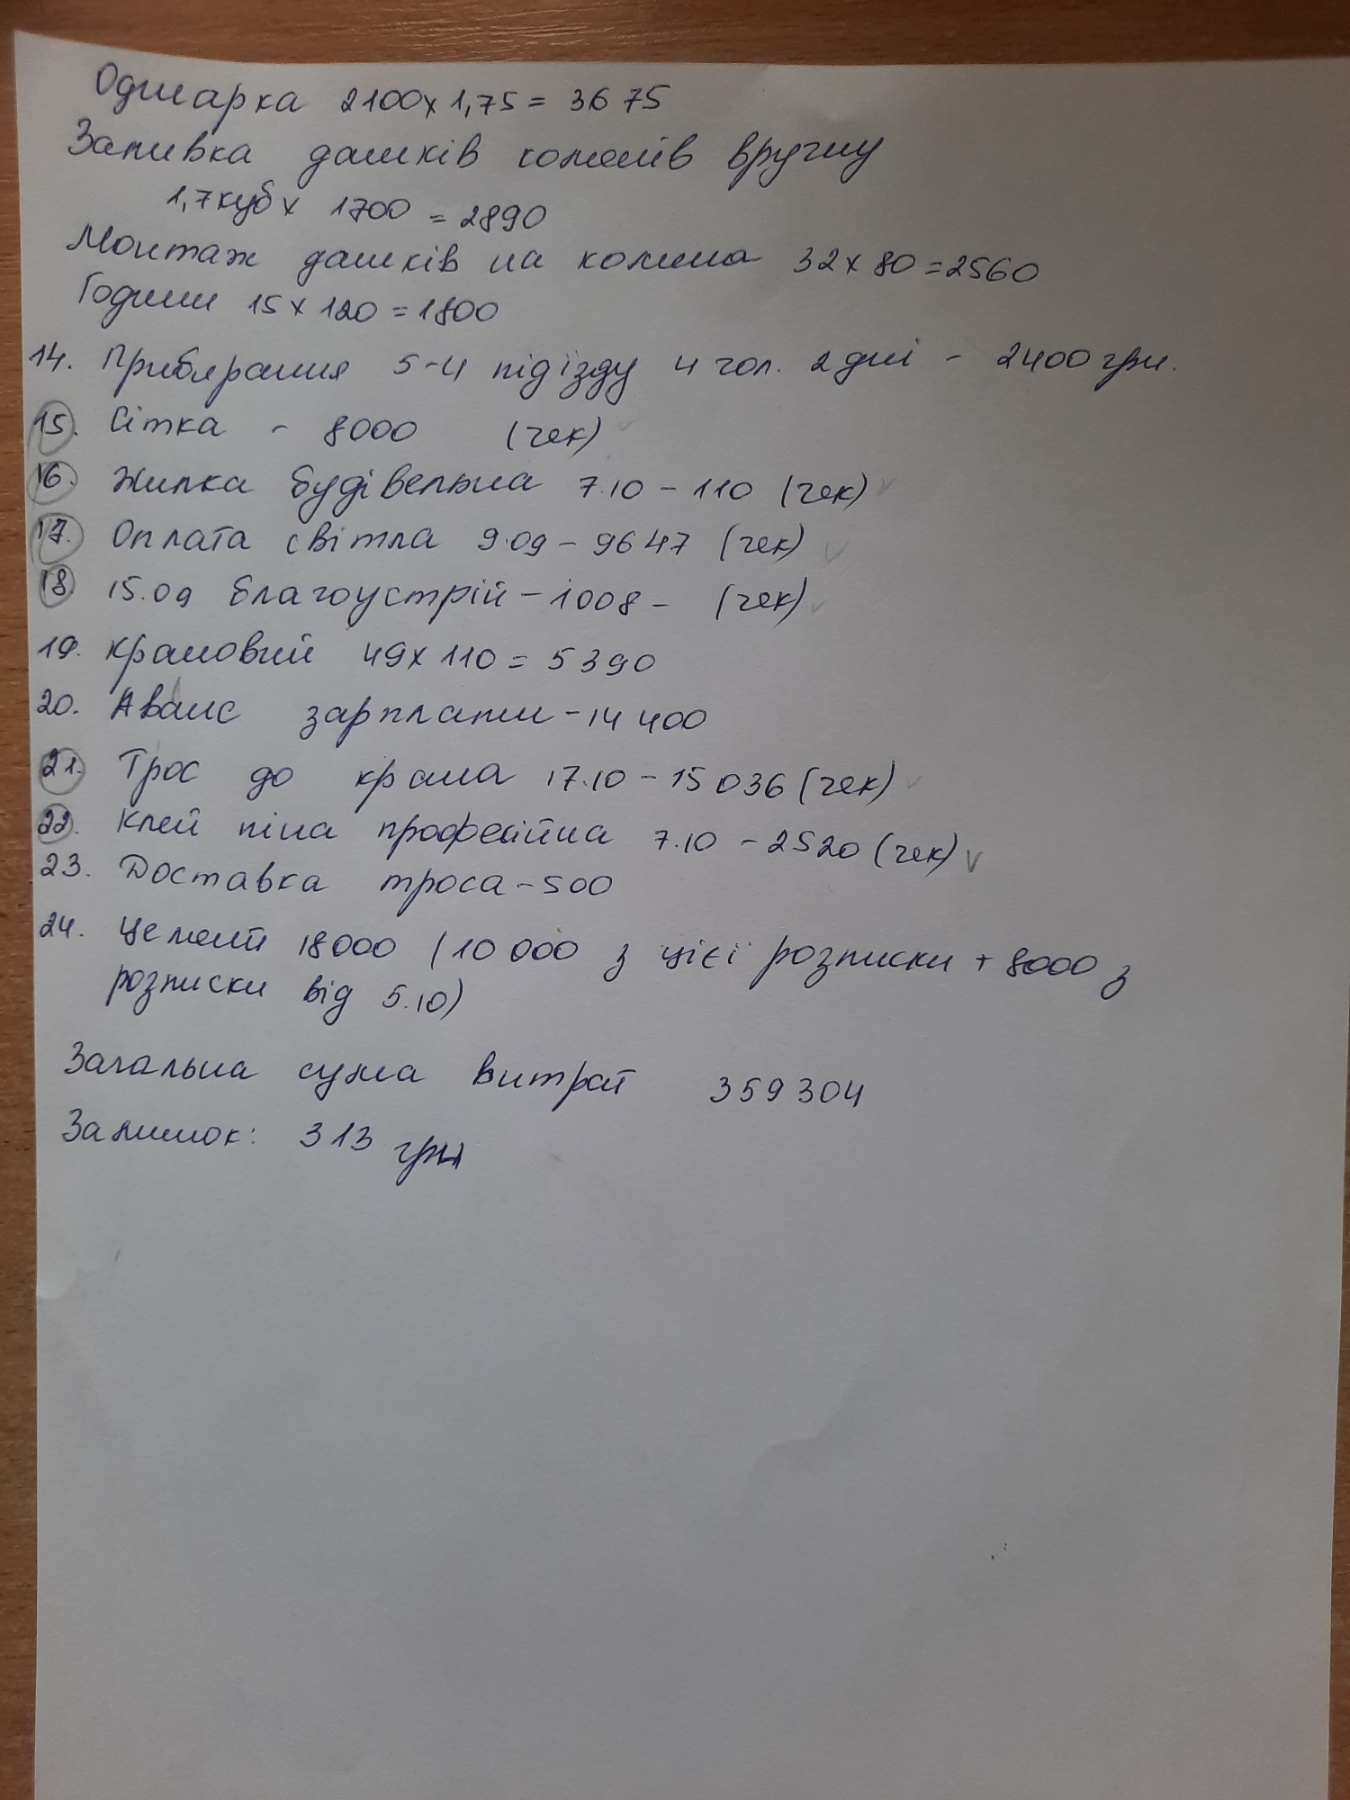 Одинарка 2100х1,75 = 3675
Заливка дашків комелів вручну
1,7куб х 1700 = 2890
Монтаж дашків на комина 32х80=2560
Години 15х120=1800
14. Прибирання 5-4 підїзду 4 чол. 2 дні - 2400 грн.
15. Сітка - 8000 (чек)
16. Жилка будівельна 7.10 - 110 (чек)
17. Оплата світла 9.09 - 9647 (чек)
18 15.09 благоустрій - 1008 - (чек)
19. Крановий 49х110 = 5390
20. Аванс зарплати - 14 400
21. Трос до крана 17.10 - 15036 (чек)
22. Клей піна професійна 7.10 - 2520 (чек)
23. Доставка троса - 500
24. Цемент 18000 (10 000 з цієї розписки + 8000 з
розписки від 5.10)
Загальна сума витрат 359304
Залишок: 313 грн